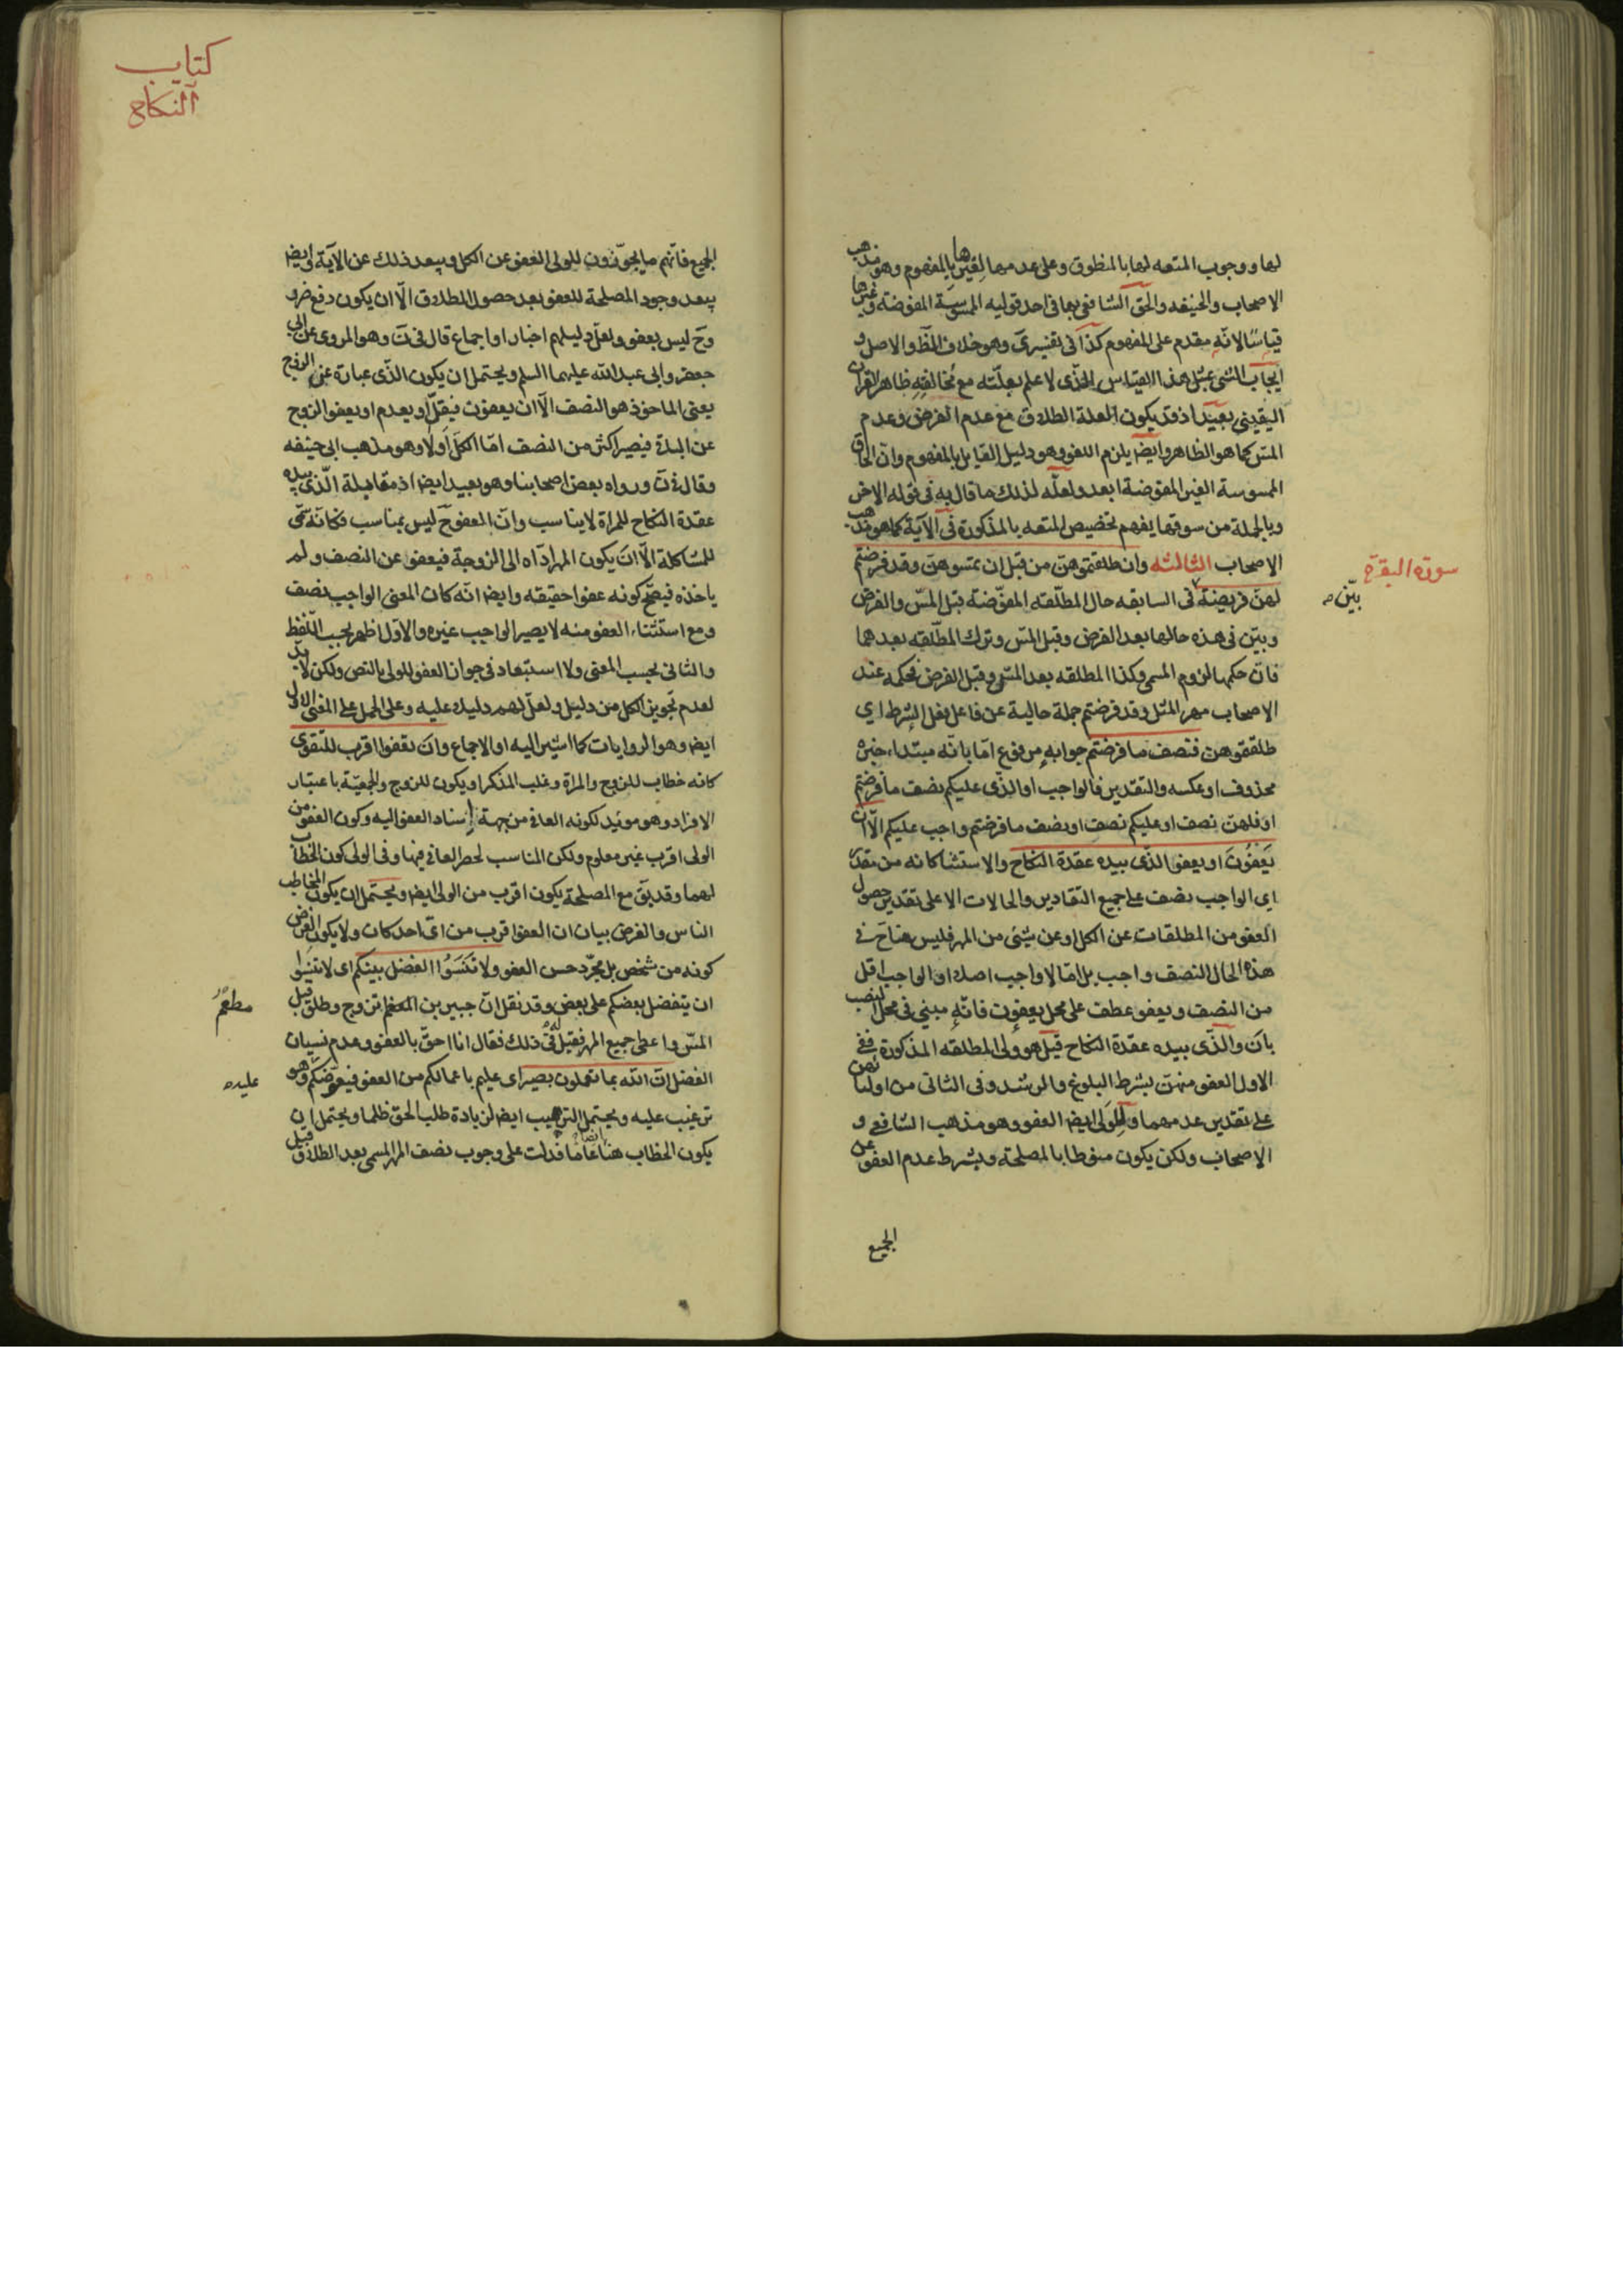 سورة البقرة
بيّن صه
لها ووجوب المتعه لها بالمنطوق وعلى عدمها لغيرها بالمفهوم وهو مذهب
الاصحاب والحنيفه والحق الشافعى بها فى احد قوليه الممسوسة المفوضة وغيرها
قياسًا لانّه مقدم على المفهوم كذا فى تفسيرى وهو خلاف الظّ والاصل و
ايجاب الشئ بمثل هذا القياس الّذى لا علم بعلّته مع مخالفته ظاهر القران
اليقينى بعيد اذ قد يكون العلة الطلاق مع عدم الفرض وعدم
المسّ كما هو الظاهر وايضا يلزم اللغو وهو دليل القايل بالمفهوم وانّ الحاق
الممسوسة الغير المفوضة ابعد ولعلّه لذلك ما قال به فى قوله الاخر
وبالجملة من سوقها يفهم تخصيص المتعه بالمذكورة فى الآية كما هو مذهب
الاصحاب الثالثه وان طلقتموهنّ من قبل ان تمسوهنّ وقد فرضتم
لهنّ فريضة فى السابقه حال المطلّقه المفوّضة قبل المسّ والفرض
وبيّن فى هذه حالها بعد الفرض وقبل المسّ وترك المطلّقه بعدهما
فانّ حكمها لزوم المسمى وكذا المطلقه بعد المسّ وقبل الفرض فحكمه عند
الاصحاب مهر المثل وقد فرضتم جملة حالية عن فاعل فعل الشرط اى
طلقتموهنّ فنصف ما فرضتم جوابه مرفوع امّا بانّه مبتداء خبره
محذوف او عكسه والتقدير فالواجب او الذّى عليكم نصف ما فرضتم
او فلهنّ نصف او عليكم نصف او نصف ما فرضتم واجب عليكم الّا ان
يَعفُونَ او يعفو الذّى بيده عقدة النكاح والاستثنا كانه من مقدّر
اى الواجب نصف على جميع التقادير والحالات الا على تقدير حصول
العفو من المطلقات عن الكل او عن شئ من المهر فليس هناح فى
هذه الحال النصف واجب بل امّا لا واجب اصلا او الواجب اقل
من النصف ويعفو عطف على محل يعفون فانّه مبنى فى محل النصب
بان والذّى بيده عقدة النكاح قيل هو ولى المطلقه المذكورة ففى
الاول العفو منهنّ بشرط البلوغ والرشد وفى الثانى من اوليائهنّ
على تقدير عدمهما وللولى ايضا العفو وهو مذهب الشافعى و
الاصحاب ولكن يكون منوطا بالمصلحة وبشرط عدم العفو عن
الجميع
كتاب
النكاح
الجميع فانّهم ما يجوّزون للولى العفو عن الكل ويبعد ذلك عن الآية وايضا
يبعد وجود المصلحة للعفو بعد حصول الطلاق الّا ان يكون دفع ضرر
وح ليس بعفو ولعلّ دليلهم اخبار او اجماع قال فى ن وهو المروى عن ابى
جعفر وابى عبد الله عليهما السلم ويحتمل ان يكون الذّى عبارة عن الزوج
يعنى الماخوذ هو النصف الّا ان يعفون فيقلّ او يعدم او يعفو الزوج
عن الباقى فيصير اكثر من النصف امّا الكلّ او لا وهو مذهب ابى حنيفه
وقال فى ن ورواه بعض اصحابنا وهو بعيد ايضا اذ مقابلة الّذى بيده
عقدة النكاح للمراة لا يناسب وانّ العفو ح ليس بمناسب فكانّه سمّى
للمشاكلة الّا ان يكون المهر ادّاه الى الزوجة فيعفو عن النصف ولم
ياخذه فيصحّ كونه عفوا حقيقه وايضا انّه كان المعنى الواجب نصف
ومع استثناء العفو منه لا يصير الواجب غيره والاول اظهر بحسب اللّفظ
والثانى بحسب المعنى ولا استبعاد فى جواز العفو للولى بالنص ولكن لا بدّ
لعدم تجويز الكل من دليل ولعلّ لهم دليلا عليه وعلى الحمل على المعنى الاول
ايضا وهو الروايات كما اشير اليه او الاجماع وان تعفوا اقرب للتّقوى
كانه خطاب للزوج والمراة وغلب المذكر او يكون للزوج والجمعيّة باعتبار
الافراد وهو مويّد لكونه العافى من جهة اسناد العفو اليه وكون العفو من
الولى اقرب غير معلوم ولكن المناسب لحصر العافى فيها وفى الولى كون الخطاب
لهما وقد يقّ مع المصلحة يكون اقرب من الولى ايضا ويحتمل ان يكون المخاطب
الناس والغرض بيان ان العفو اقرب من اىّ احد كان ولا يكون الغرض
كونه من شخص بل مجرّد حسن العفو ولا تَنسَوُا الفضل بينكم اى لا تنسوا
ان يتفضل بعضكم على بعض وقد نقل انّ جبير بن المطعم تزوج وطلق قبل
مطعم
المسّ واعطى جميع المهر فقيل له فى ذلك فقال انا احقّ بالعفو وعدم نسيان
الفضل انّ الله بما تعملون بصير اى عليم باعمالكم من العفو فيعوّضكم وهو
عليه صه
ترغيب عليه ويحتمل الترهيب ايضا لزيادة طلب الحق ظلما ويحتمل ان
يكون الخطاب هنا ايضا عاما فدلت على وجوب نصف المهر المسمى بعد الطلاق قبل